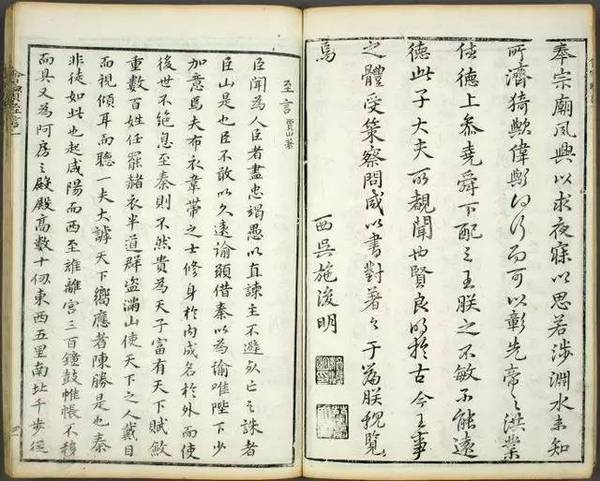 奉宗廟夙興以求夜寐以思若涉淵水未知
所濟猗歟偉歟何行而可以彰先帝之洪業
休德上參堯舜下配三王朕之不敏不能遠
德此子大夫所覩聞也賢良明於古今王事
之體受策察問咸以書對著之于篇朕親覽
焉
西吳施浚明
至言 賈山著
臣聞為人臣者盡忠竭愚以直諫主不避死亡之誅者
臣山是也臣不敢以久遠諭願借秦以為諭唯陛下少
加意焉夫布衣韋帶之士修身於內成名於外而使
後世不絶息至秦則不然貴為天子富有天下賦斂
重數百姓任罷赭衣半道群盜滿山使天下之人戴目
而視傾耳而聽一夫大謼天下嚮應者陳勝是也秦
非徒如此也起咸陽而西至雍離宮三百鐘鼓帷帳不移
而具又為阿房之殿殿高數十仞東西五里南北千步從